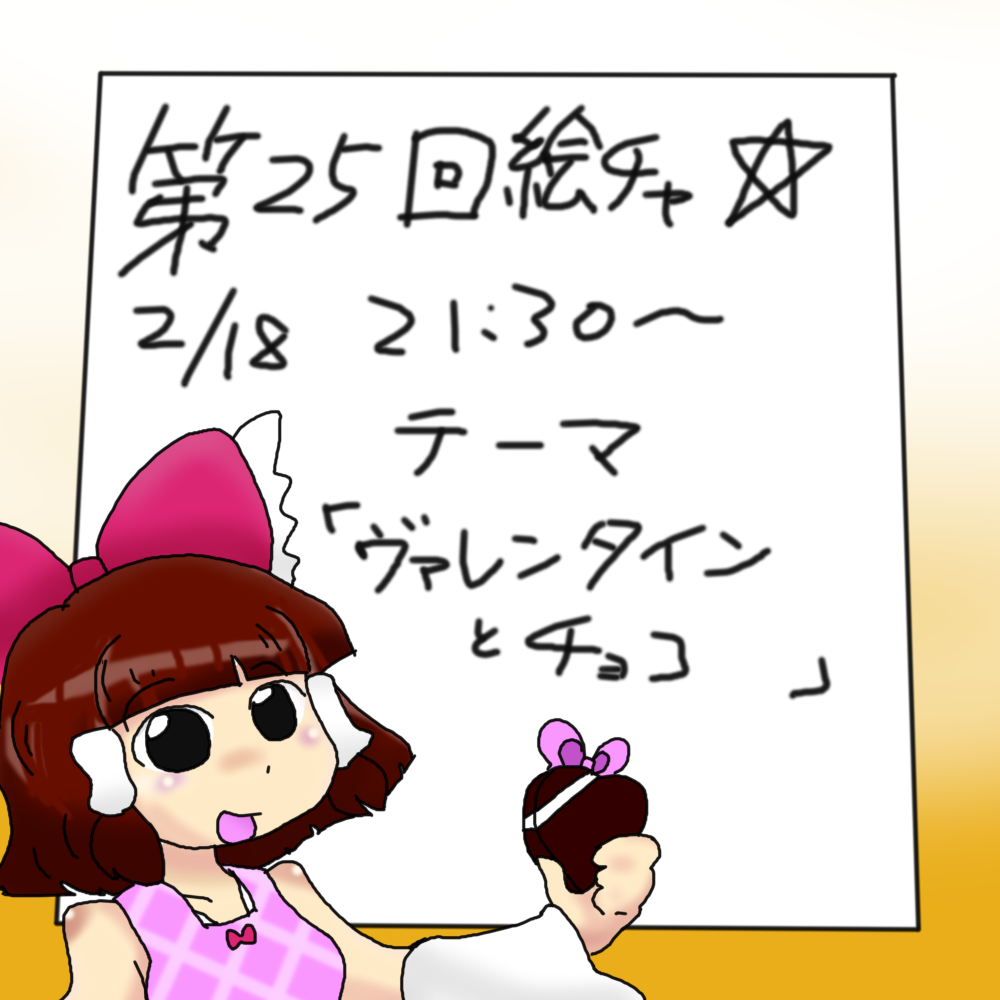 第25回絵チャ☆
2/18 21:30～
テーマ
「ヴァレンタイン
とチョコ」